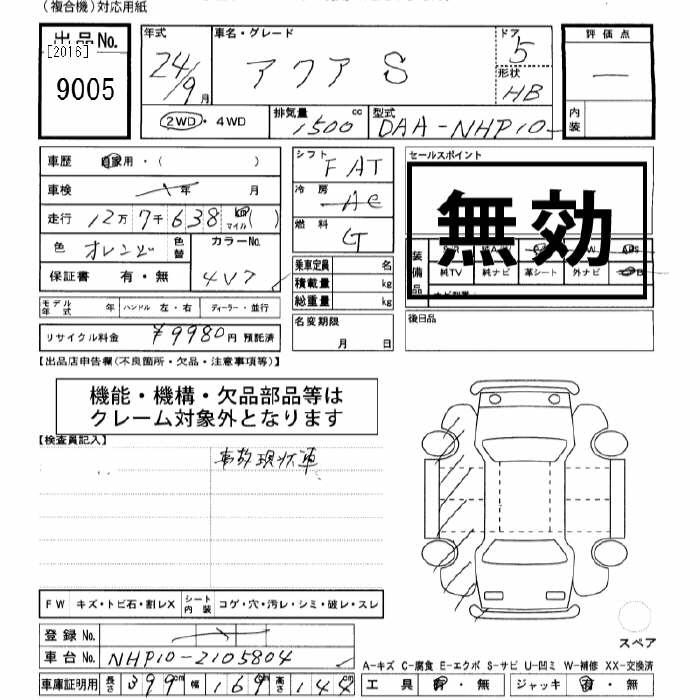 (複合機)対応用紙
出品No. [2016] 9005
年式 24/9月
車名・グレード アクア S
ドア 5
形状 HB
2WD・4WD
排気量 1500cc
型式 DAA-NHP10-
評価点 —
内装
車歴 自家用・( )
車検 年 月
走行 12万7千638 km マイル ( )
色 オレンジ 色替
カラーNo. 4V7
保証書 有・無
シフト FAT
冷房 AC
燃料 G
乗車定員 名
積載量 kg
総重量 kg
セールスポイント
無効
装備品
純TV 純ナビ 革シート 外ナビ
モデル年式 年 ハンドル 左・右 ディーラー・並行
リサイクル料金 ¥9980円 預託済
名変期限 月 日
後日品
【出品店申告欄(不良箇所・欠品・注意事項等)】
機能・機構・欠品部品等は
クレーム対象外となります
【検査員記入】
事故現状車
FW キズ・トビ石・割レX シート内装 コゲ・穴・汚レ・シミ・破レ・スレ
登録No.
車台No. NHP10-2105804
車庫証明用 長さ 399cm 幅 169cm 高さ 144cm
スペア
A-キズ C-腐食 E-エクボ S-サビ U-凹ミ W-補修 XX-交換済
工具 有・無 ジャッキ 有・無